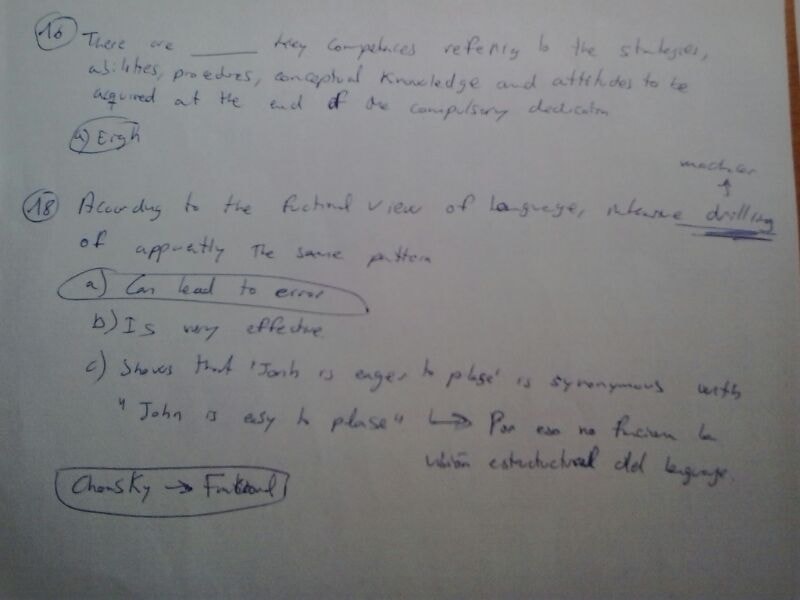 16 There are ______ key competences refering to the strategies,
abilities, procedures, conceptual knowledge and attitudes to be
acquired at the end of the compulsory
a) Eigh
machacar
18 According to the fuctional view of language, intensive drilling
of appartly the same pattern
a) Can lead to error
b) Is very effective
c) Shows that 'Jonh is eager to plase' is synonymous with
"John is easy to plase" → Por eso no funciona la
visión estructural del language.
Chomsky → Funtional